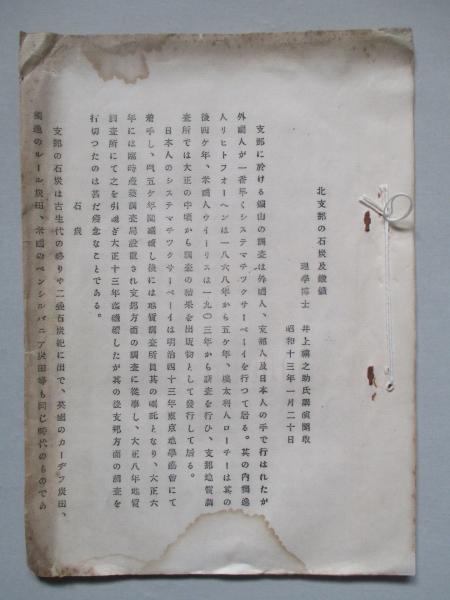 北支那の石炭及鐵鑛
理學博士 井上禧之助氏講演聞取
昭和十三年一月二十日
支那に於ける鑛山の調査は外國人、支那人及日本人の手で行はれたが
外國人が一番早くシステマチツクサーベーイを行つて居る。其の內獨逸
人リヒトフオーヘンは一八六八年から五ケ年、墺太利人ローチーは其の
後四ケ年、米國人ウイーリスは一九〇三年から調査を行ひ、支那地質調
査所では大正の中頃から調査の結果を出版物として發行して居る。
日本人のシステマチツクサーベーイは明治四十三年東京地學協會にて
着手し、四五ケ年間繼續し後には地質調査所員其の囑託となり、大正六
年には臨時產業調査局設置され支那方面の調査に從事し、大正八年地質
調査所にて之を引繼ぎ大正十三年迄繼續したが其の後支那方面の調査を
行切つたのは甚だ殘念なことである。
石炭
支那の石炭は古生代の終りや二疊石炭紀に出で、英國のカーヂフ炭田、
獨逸のルール炭田、米國のペンシルバニア炭田等も同じ時代のものであ